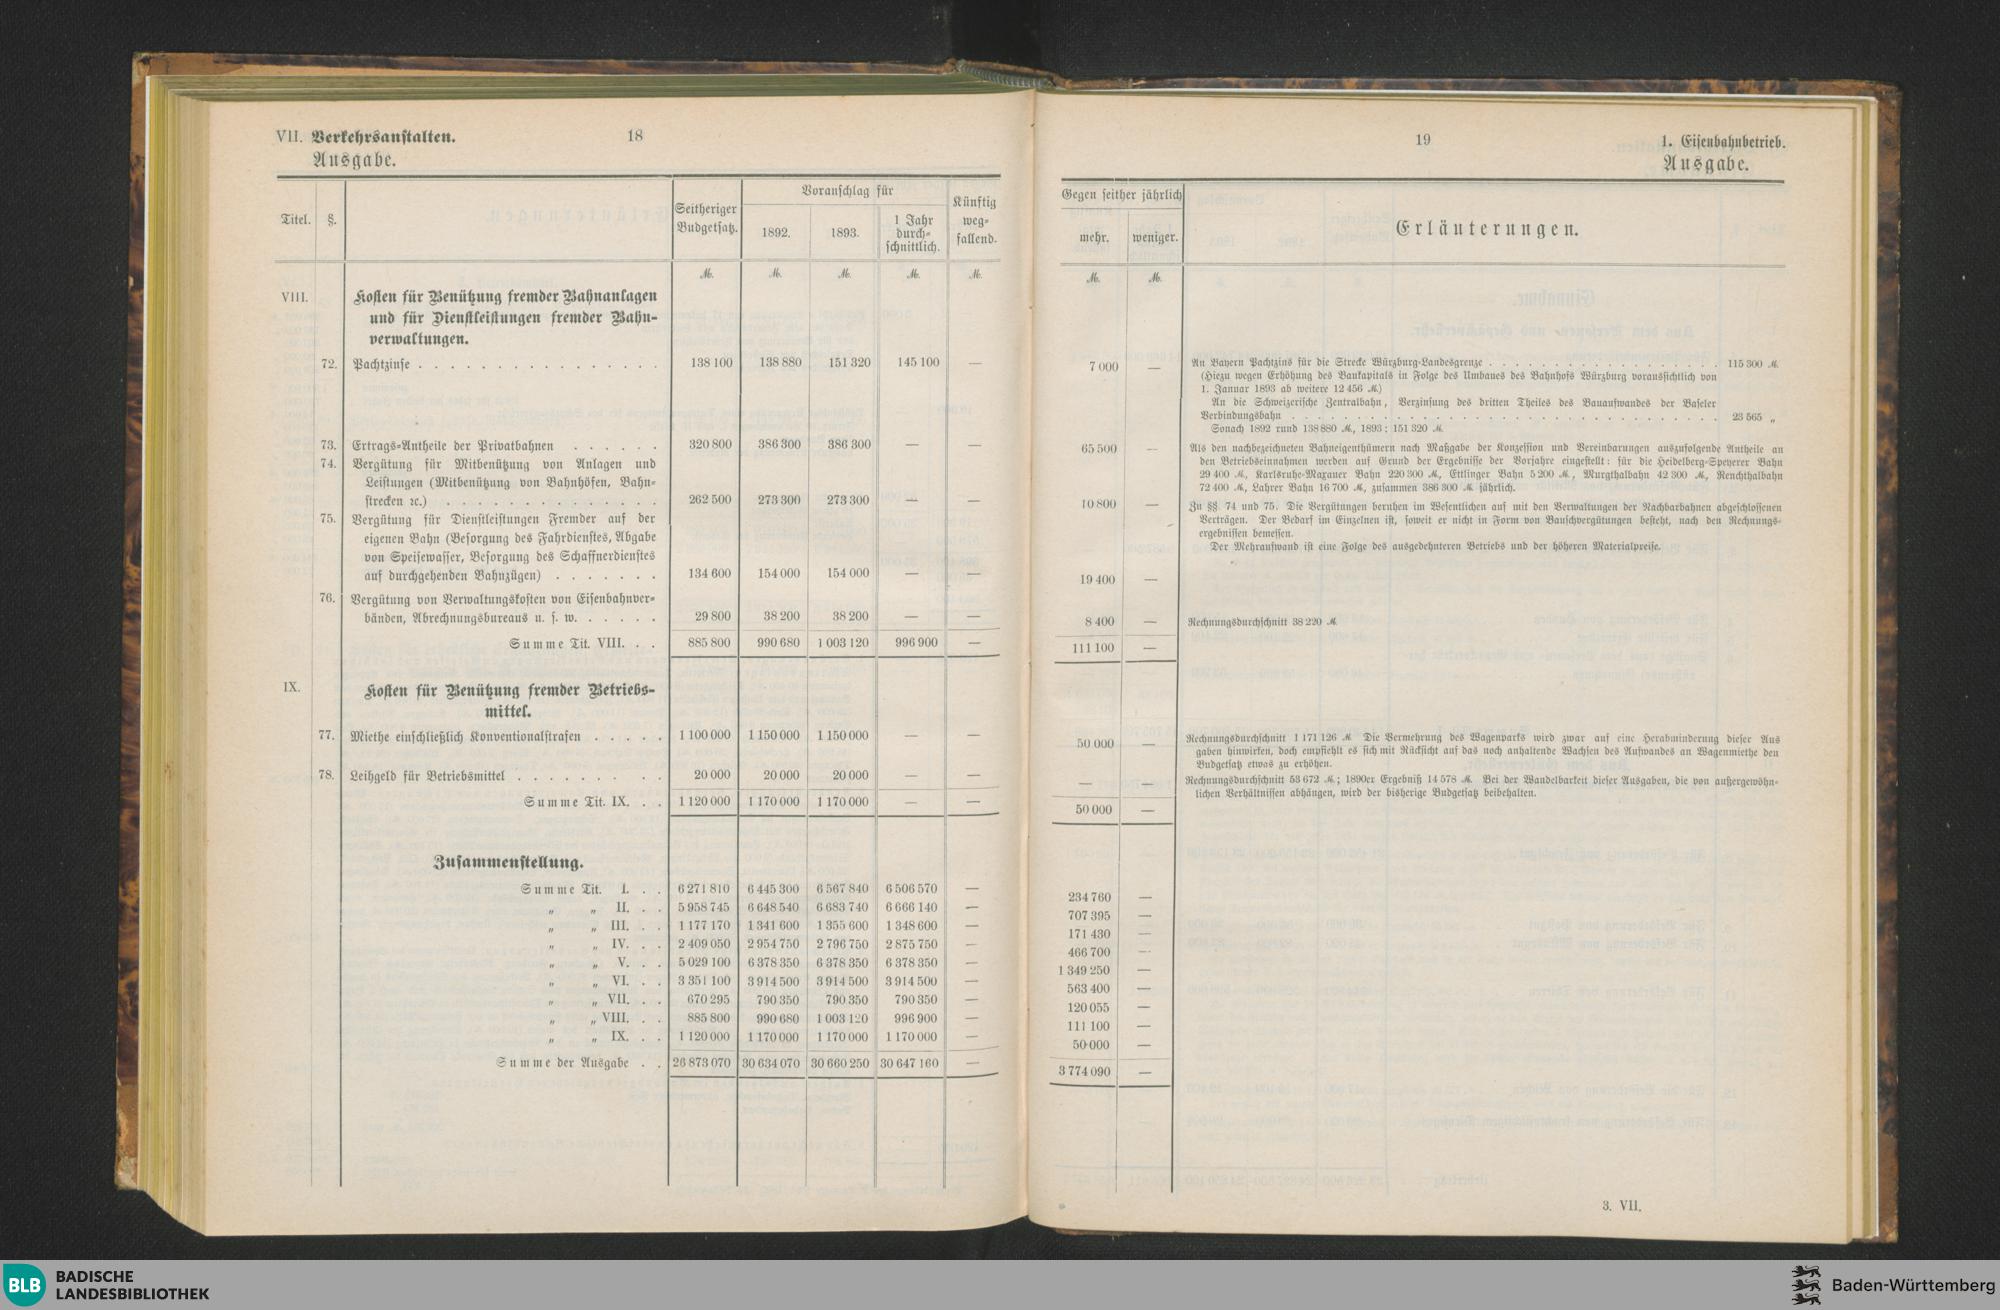 VII. Verkehrsanstalten.
Ausgabe.
18
Titel. §. Seitheriger Budgetsatz. Voranschlag für 1892. 1893. 1 Jahr durch-schnittlich. Künftig weg-fallend.
ℳ. ℳ. ℳ. ℳ. ℳ.
VIII. Kosten für Benützung fremder Bahnanlagen
und für Dienstleistungen fremder Bahn-
verwaltungen.
72. Pachtzinse . . . . . . . . . . . . . . . . 138 100 138 880 151 320 145 100 —
73. Ertrags-Antheile der Privatbahnen . . . . . . 320 800 386 300 386 300 — —
74. Vergütung für Mitbenützung von Anlagen und
Leistungen (Mitbenützung von Bahnhöfen, Bahn-
strecken ꝛc.) . . . . . . . . . . . . . . 262 500 273 300 273 300 — —
75. Vergütung für Dienstleistungen Fremder auf der
eigenen Bahn (Besorgung des Fahrdienstes, Abgabe
von Speisewasser, Besorgung des Schaffnerdienstes
auf durchgehenden Bahnzügen) . . . . . . . 134 600 154 000 154 000 — —
76. Vergütung von Verwaltungskosten von Eisenbahnver-
bänden, Abrechnungsbureaus u. s. w. . . . . . 29 800 38 200 38 200 — —
Summe Tit. VIII. . . 885 800 990 680 1 003 120 996 900 —
IX. Kosten für Benützung fremder Betriebs-
mittel.
77. Miethe einschließlich Konventionalstrafen . . . . . 1 100 000 1 150 000 1 150 000 — —
78. Leihgeld für Betriebsmittel . . . . . . . . . 20 000 20 000 20 000 — —
Summe Tit. IX. . . 1 120 000 1 170 000 1 170 000 — —
Zusammenstellung.
Summe Tit. I. . . 6 271 810 6 445 300 6 567 840 6 506 570 —
„ „ II. . . 5 958 745 6 648 540 6 683 740 6 666 140 —
„ „ III. . . 1 177 170 1 341 600 1 355 600 1 348 600 —
„ „ IV. . . 2 409 050 2 954 750 2 796 750 2 875 750 —
„ „ V. . . 5 029 100 6 378 350 6 378 350 6 378 350 —
„ „ VI. . . 3 351 100 3 914 500 3 914 500 3 914 500 —
„ „ VII. . . 670 295 790 350 790 350 790 350 —
„ „ VIII. . . 885 800 990 680 1 003 120 996 900 —
„ „ IX. . . 1 120 000 1 170 000 1 170 000 1 170 000 —
Summe der Ausgabe . . 26 873 070 30 634 070 30 660 250 30 647 160 —
19
1. Eisenbahnbetrieb.
Ausgabe.
Gegen seither jährlich mehr. weniger. Erläuterungen.
ℳ. ℳ.
7 000 — An Bayern Pachtzins für die Strecke Würzburg-Landesgrenze . . . . . . . . . . . . . . . . . . 115 300 ℳ.
(Hiezu wegen Erhöhung des Baukapitals in Folge des Umbaues des Bahnhofs Würzburg voraussichtlich von
1. Januar 1893 ab weitere 12 456 ℳ.)
An die Schweizerische Zentralbahn, Verzinsung des dritten Theiles des Bauaufwandes der Baseler
Verbindungsbahn . . . . . . . . . . . . . . . . . . . . . . . . . . . . . . 23 565 „
Sonach 1892 rund 138 880 ℳ., 1893: 151 320 ℳ.
65 500 — Als den nachbezeichneten Bahneigenthümern nach Maßgabe der Konzession und Vereinbarungen auszufolgende Antheile an
den Betriebseinnahmen werden auf Grund der Ergebnisse der Vorjahre eingestellt: für die Heidelberg-Speyerer Bahn
29 400 ℳ, Karlsruhe-Maxauer Bahn 220 300 ℳ, Ettlinger Bahn 5 200 ℳ, Murgthalbahn 42 300 ℳ, Renchthalbahn
72 400 ℳ, Lahrer Bahn 16 700 ℳ, zusammen 386 300 ℳ jährlich.
10 800 — Zu §§ 74 und 75. Die Vergütungen beruhen im Wesentlichen auf mit den Verwaltungen der Nachbarbahnen abgeschlossenen
Verträgen. Der Bedarf im Einzelnen ist, soweit er nicht in Form von Bauschvergütungen besteht, nach den Rechnungs-
ergebnissen bemessen.
Der Mehraufwand ist eine Folge des ausgedehnteren Betriebs und der höheren Materialpreise.
19 400 —
8 400 — Rechnungsdurchschnitt 38 220 ℳ.
111 100 —
50 000 — Rechnungsdurchschnitt 1 171 126 ℳ. Die Vermehrung des Wagenparks wird zwar auf eine Herabminderung dieser Aus
gaben hinwirken, doch empfiehlt es sich mit Rücksicht auf das noch anhaltende Wachsen des Aufwandes an Wagenmiethe den
Budgetsatz etwas zu erhöhen.
— — Rechnungsdurchschnitt 53 672 ℳ.; 1890er Ergebniß 14 578 ℳ. Bei der Wandelbarkeit dieser Ausgaben, die von außergewöhn-
lichen Verhältnissen abhängen, wird der bisherige Budgetsatz beibehalten.
50 000 —
234 760 —
707 395 —
171 430 —
466 700 —
1 349 250 —
563 400 —
120 055 —
111 100 —
50 000 —
3 774 090 —
3. VII.
BLB BADISCHE
LANDESBIBLIOTHEK
Baden-Württemberg